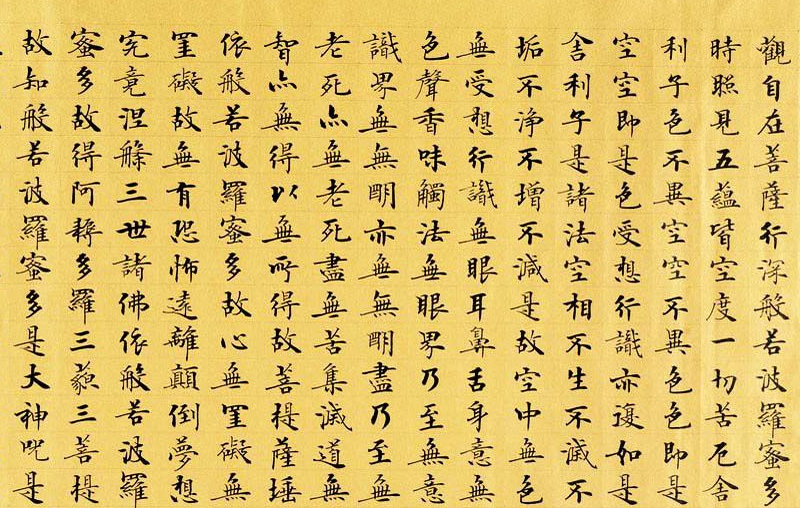 觀自在菩薩行深般若波羅蜜多
時照見五蘊皆空度一切苦厄舍
利子色不異空空不異色色即是
空空即是色受想行識亦復如是
舍利子是諸法空相不生不滅不
垢不淨不增不減是故空中無色
無受想行識無眼耳鼻舌身意無
色聲香味觸法無眼界乃至無意
識界無無明亦無無明盡乃至無
老死亦無老死盡無苦集滅道無
智亦無得以無所得故菩提薩埵
依般若波羅蜜多故心無罣礙無
罣礙故無有恐怖遠離顛倒夢想
究竟涅槃三世諸佛依般若波羅
蜜多故得阿耨多羅三藐三菩提
故知般若波羅蜜多是大神呪是